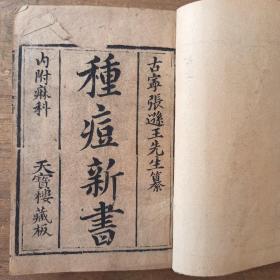 古寧張遜王先生纂
種痘新書
内附麻科
天寶樓藏板